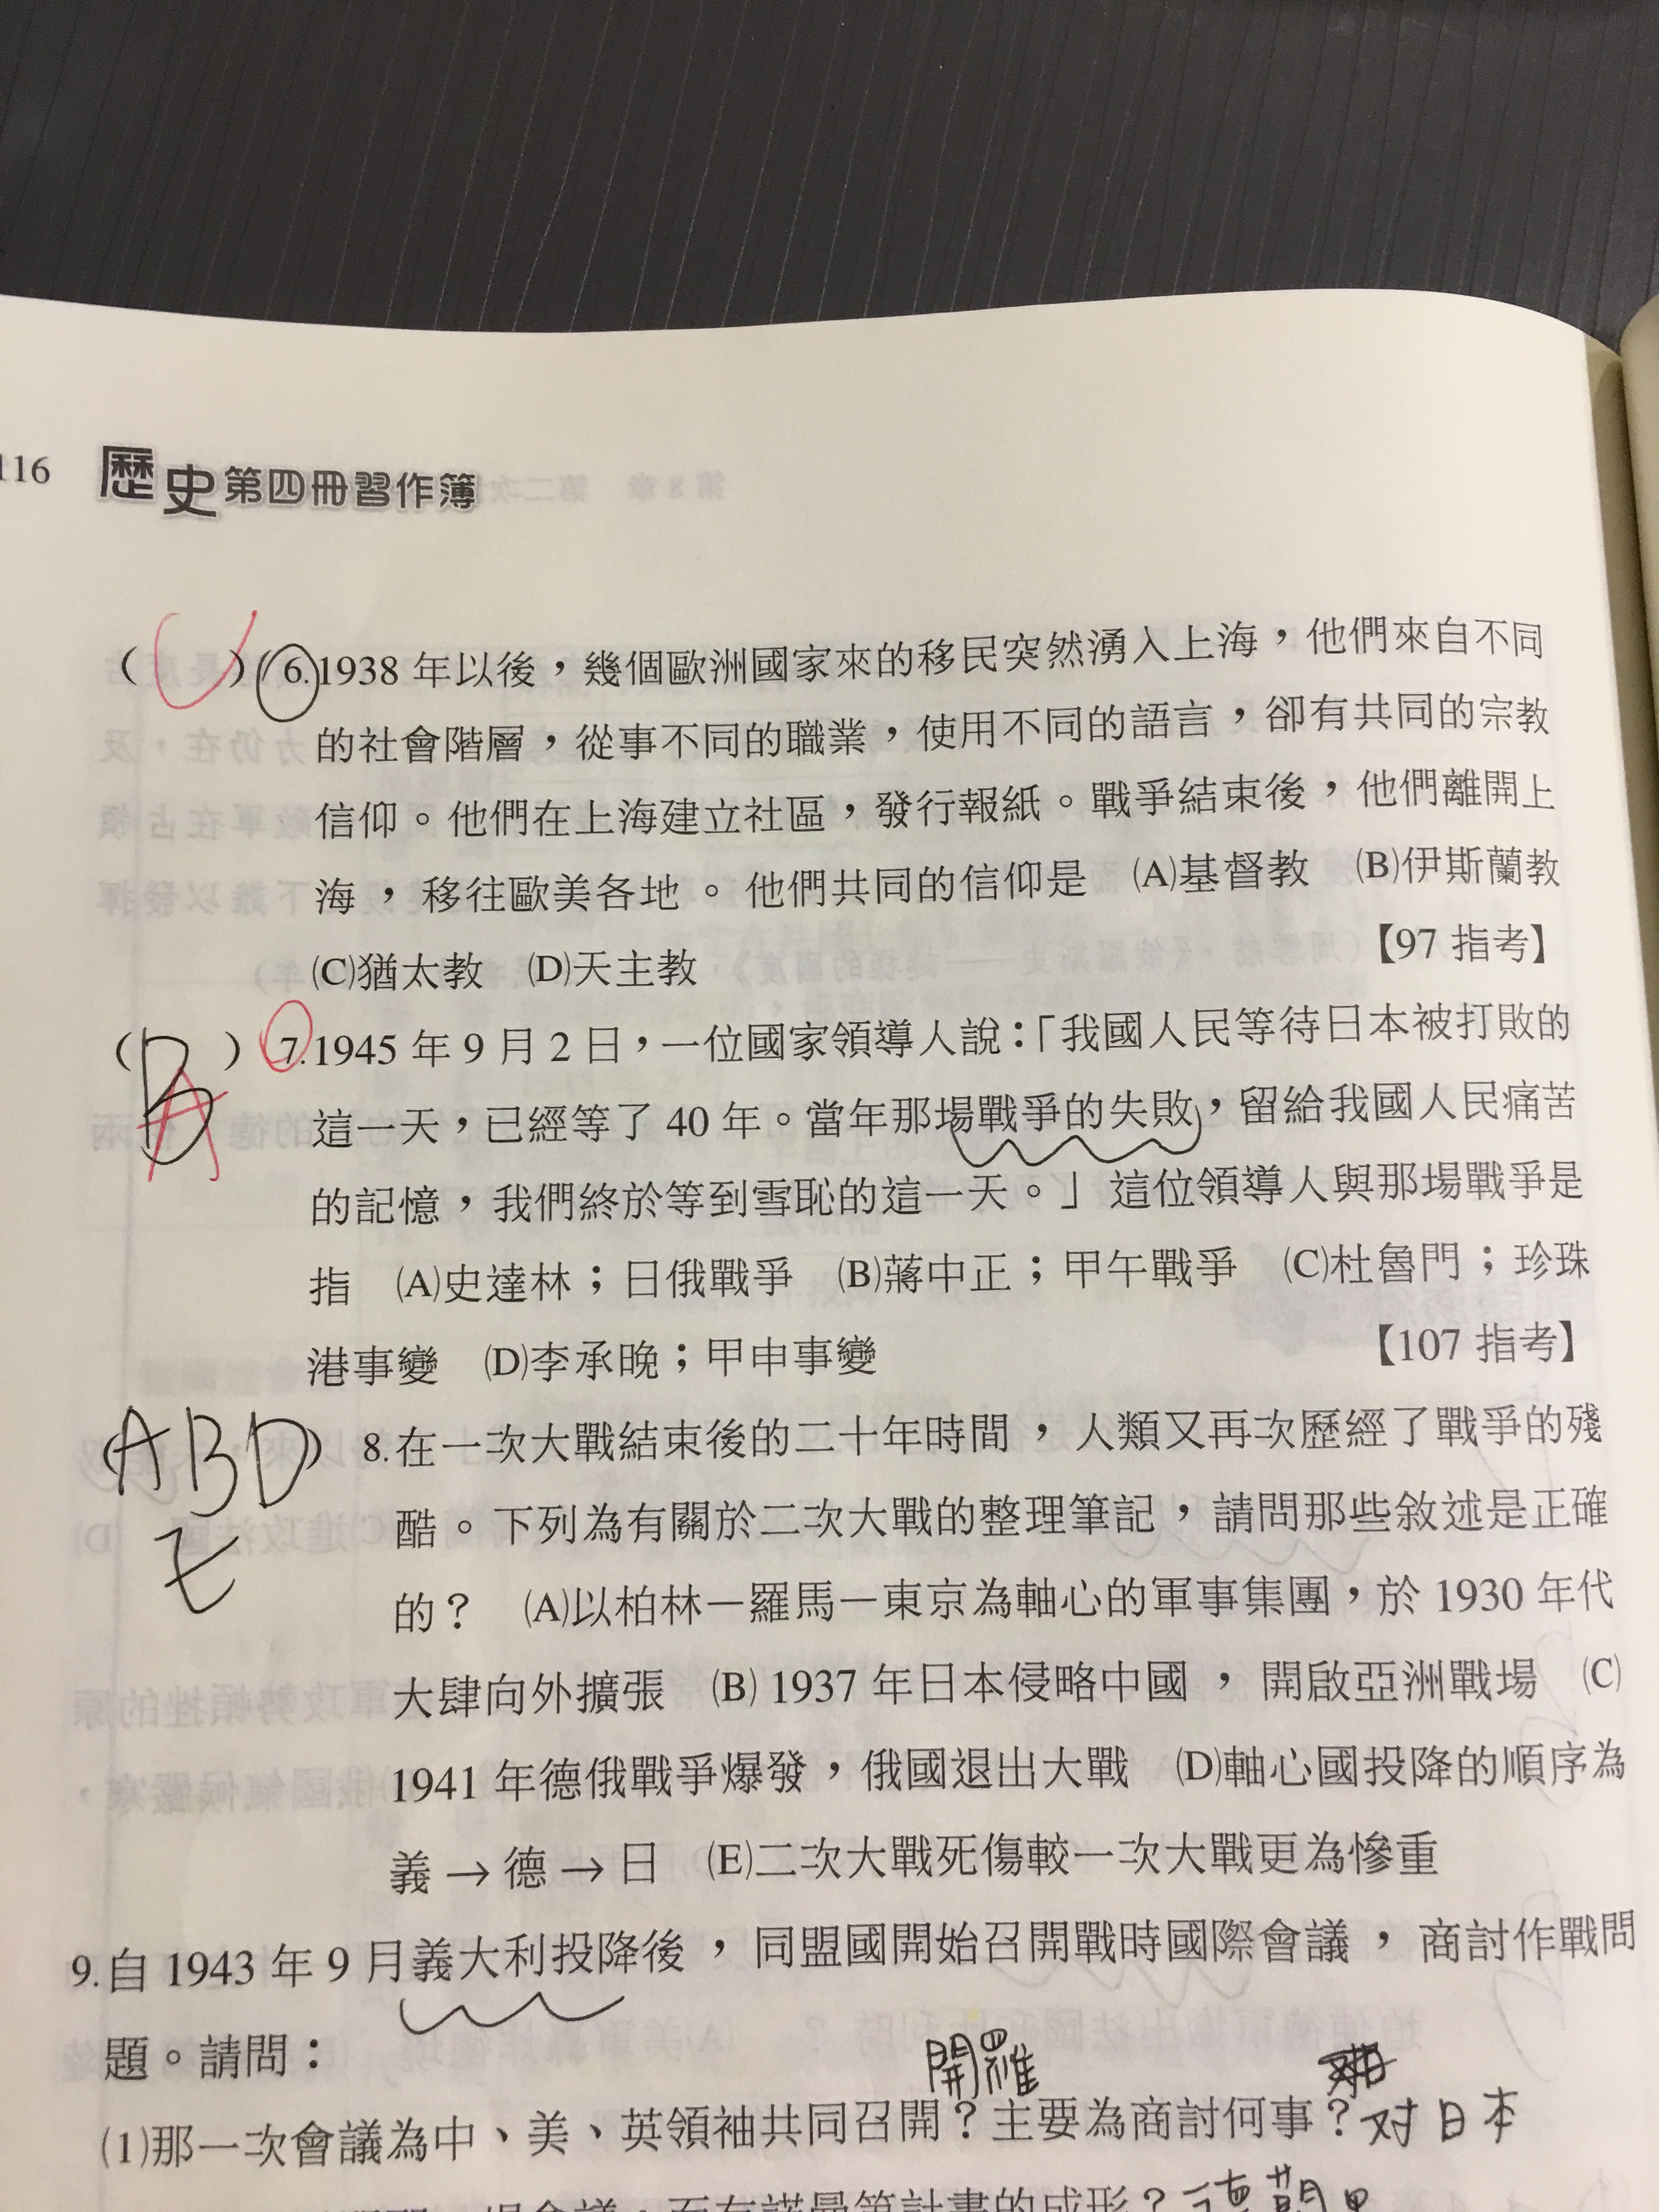 116 歷史第四冊習作簿
( C ) 6.1938 年以後，幾個歐洲國家來的移民突然湧入上海，他們來自不同
的社會階層，從事不同的職業，使用不同的語言，卻有共同的宗教
信仰。他們在上海建立社區，發行報紙。戰爭結束後，他們離開上
海，移往歐美各地。他們共同的信仰是 (A)基督教 (B)伊斯蘭教
(C)猶太教 (D)天主教 【97 指考】
( B A ) 7.1945 年 9 月 2 日，一位國家領導人說：「我國人民等待日本被打敗的
這一天，已經等了 40 年。當年那場戰爭的失敗，留給我國人民痛苦
的記憶，我們終於等到雪恥的這一天。」這位領導人與那場戰爭是
指 (A)史達林；日俄戰爭 (B)蔣中正；甲午戰爭 (C)杜魯門；珍珠
港事變 (D)李承晚；甲申事變 【107 指考】
(ABD) 8.在一次大戰結束後的二十年時間，人類又再次歷經了戰爭的殘
E 酷。下列為有關於二次大戰的整理筆記，請問那些敘述是正確
的？ (A)以柏林－羅馬－東京為軸心的軍事集團，於 1930 年代
大肆向外擴張 (B) 1937 年日本侵略中國，開啟亞洲戰場 (C)
1941 年德俄戰爭爆發，俄國退出大戰 (D)軸心國投降的順序為
義→德→日 (E)二次大戰死傷較一次大戰更為慘重
9.自 1943 年 9 月義大利投降後，同盟國開始召開戰時國際會議，商討作戰問
題。請問：
開羅
(1)那一次會議為中、美、英領袖共同召開？主要為商討何事？对日本
場會議，而有諾曼第計畫的成形？德黑